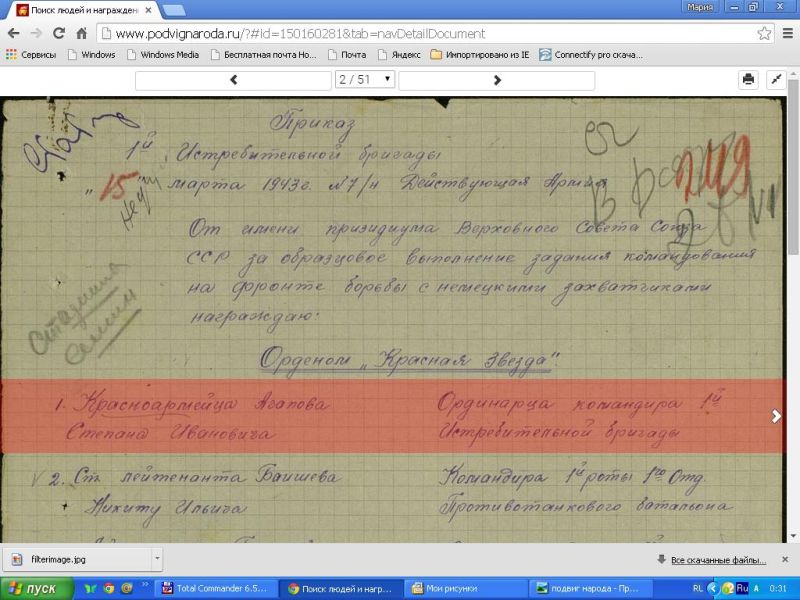 Поиск людей и награжден
Мария
www.podvignaroda.ru/?#id=150160281&tab=navDetailDocument
Сервисы Windows Windows Media Бесплатная почта Ho... Почта Яндекс Импортировано из IE Connectify pro скача...
2 / 51
Приказ
1й Истребительной бригады
„15" марта 1943г. №7/н Действующая Армия
От имени призидиума Верховного Совета Союза
ССР за образцовое выполнение задания командования
на фронте борьбы с немецкими захватчиками
награждаю:
Орденом „Красная Звезда"
1. Красноармейца Агапова Ординарца командира 1й
Степана Ивановича Истребительной бригады
2. Ст. лейтенанта Баишева Командира 1й роты 1го Отд.
Никиту Ильича Противотанкового батальона
filterimage.jpg
Все скачанные файлы...
пуск
Total Commander 6.5...
Поиск людей и нагр...
Мои рисунки
подвиг народа - Пр...
RL
Ru
0:31